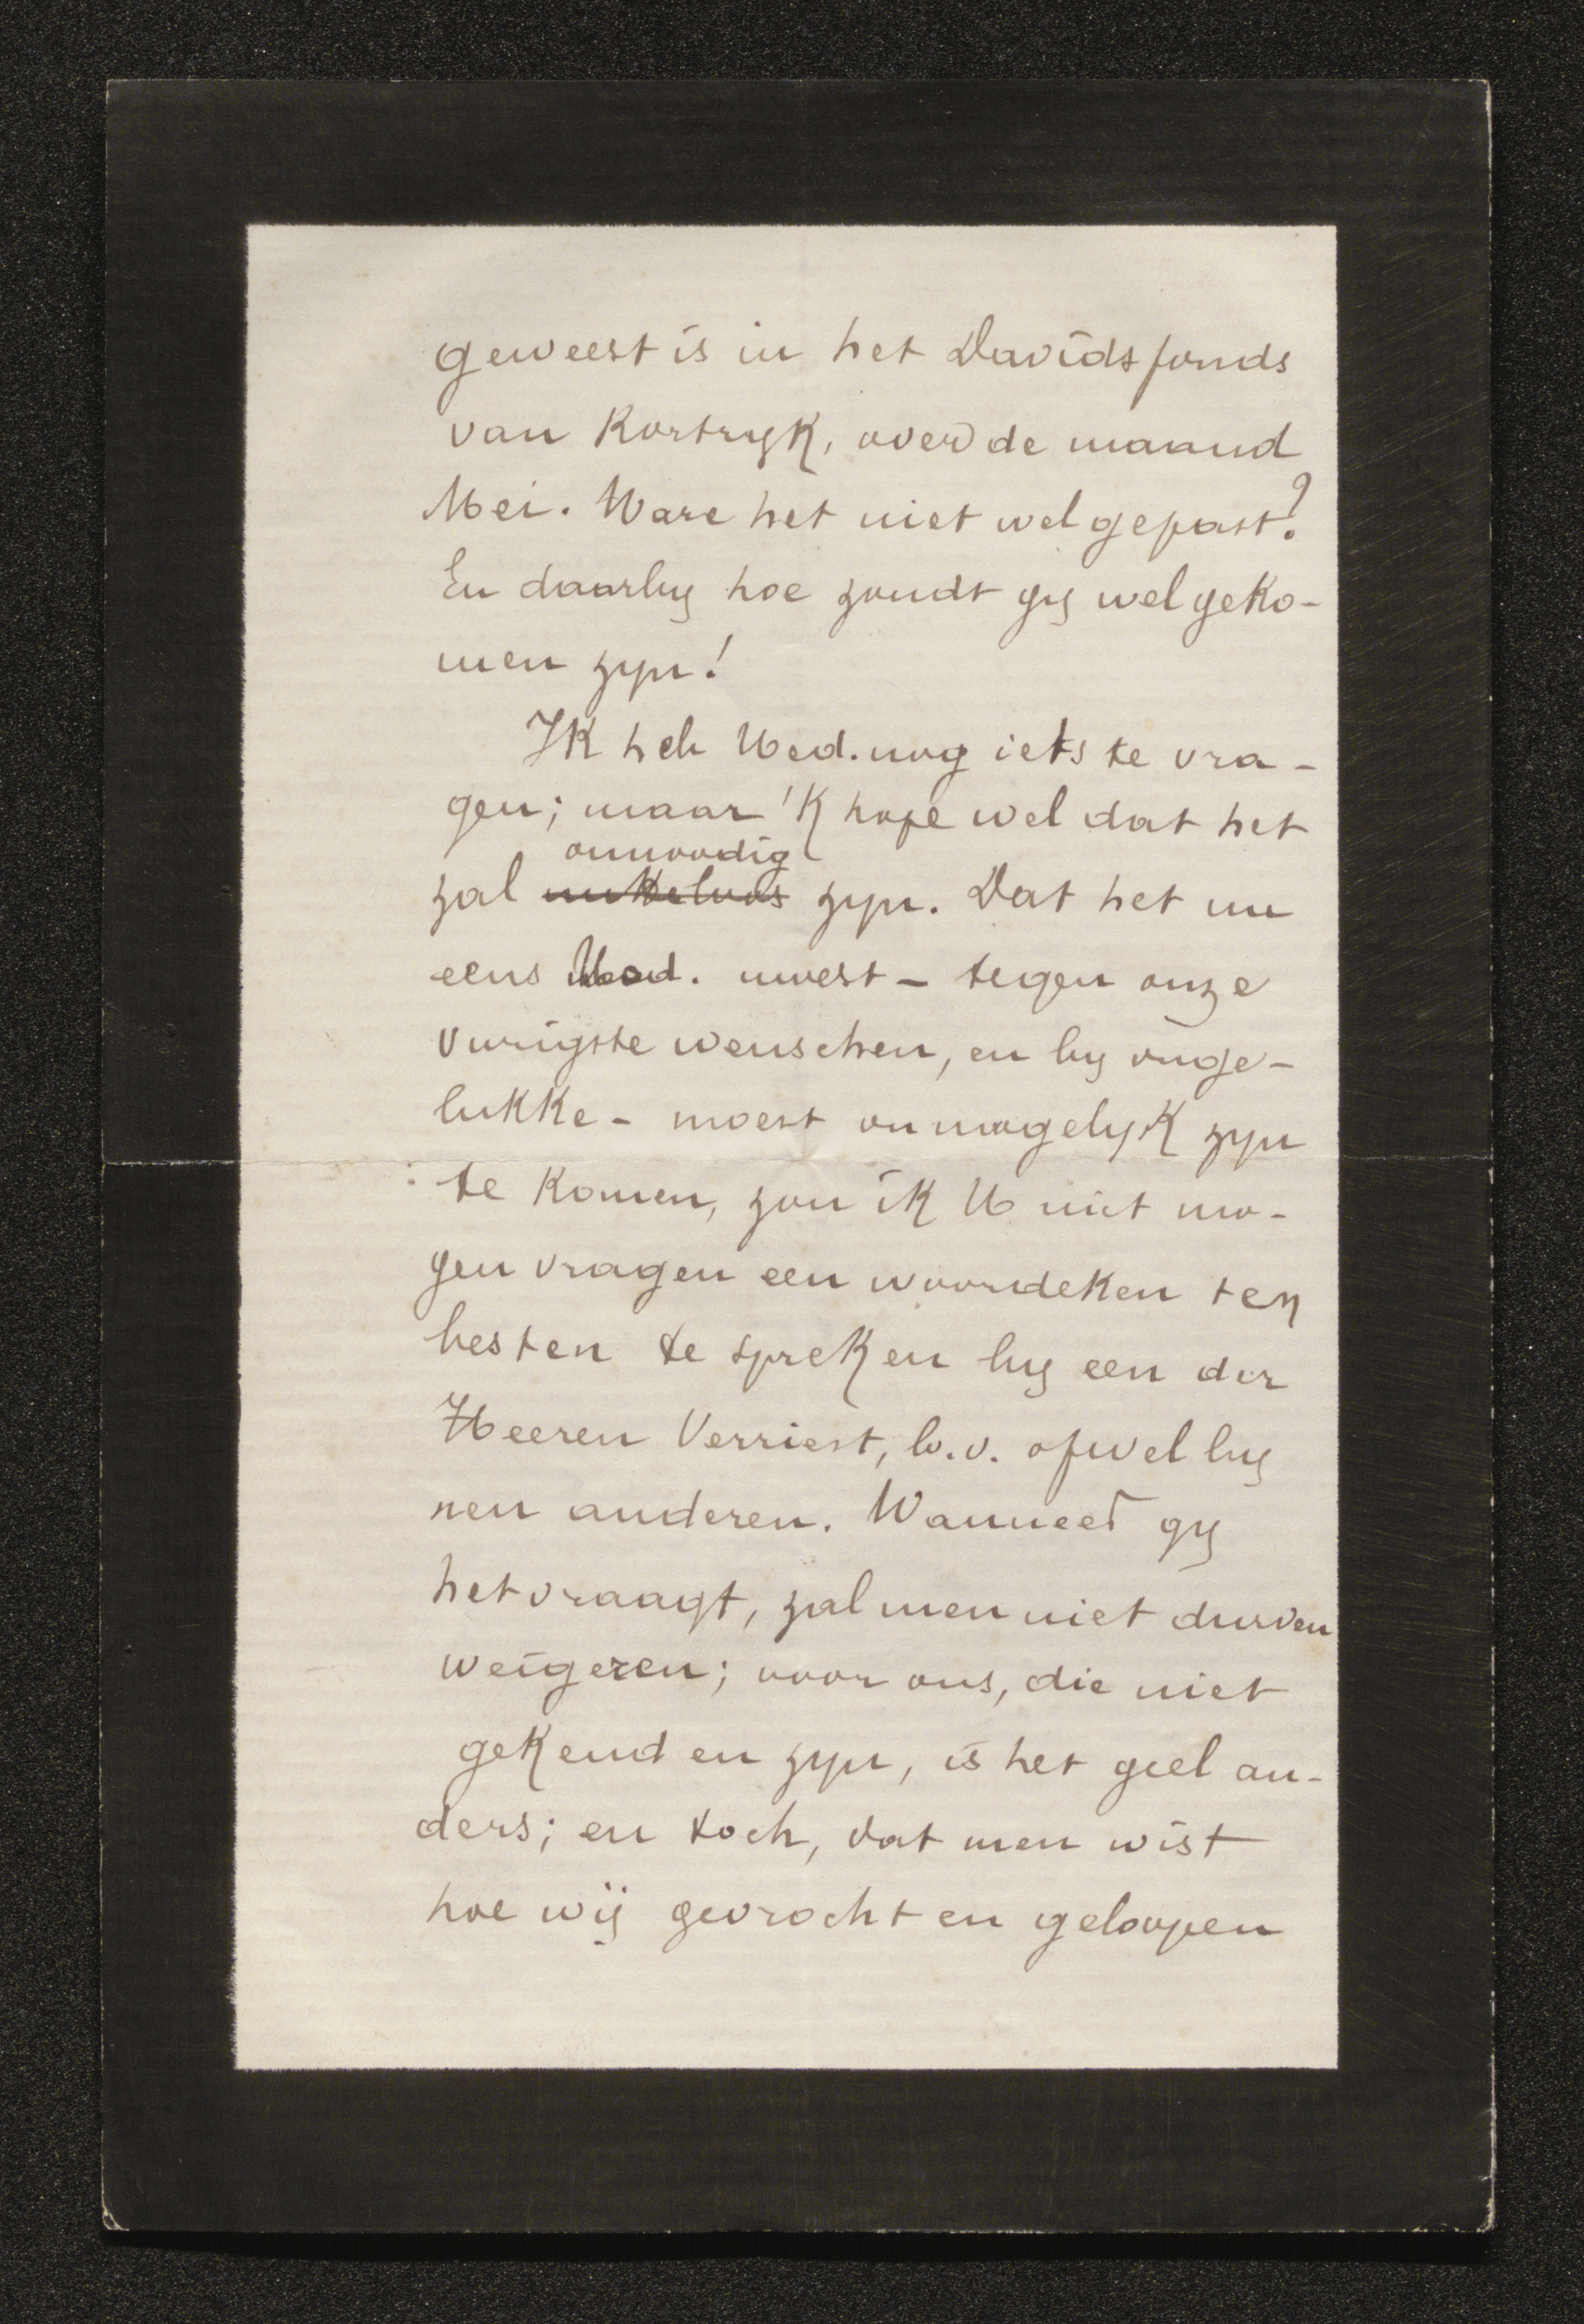 geweest is in het Davidsfonds
van Kortryk, over de maand
Mei. Ware het niet wel gepast?
En daarby hoe zoudt gy welgeko-
men zyn!
Ik heb Ued. nog iets te vra-
gen; maar 'k hope wel dat het
onnoodig
zal nutteloos zyn. Dat het nu
eens Ued. moest - tegen onze
vurigste wenschen, en by onge-
lukke - moest onmogelyk zyn
te komen, zou ik U niet mo-
gen vragen een woordeken ten
besten te spreken by een der
Heeren Verriest, b.v. ofwel by
nen anderen. Wanneer gy
het vraagt, zal men niet durven
weigeren; voor ons, die niet
gekend en zyn, is het geel an-
ders; en toch, dat men wist
hoe wij gevrocht en geloopen